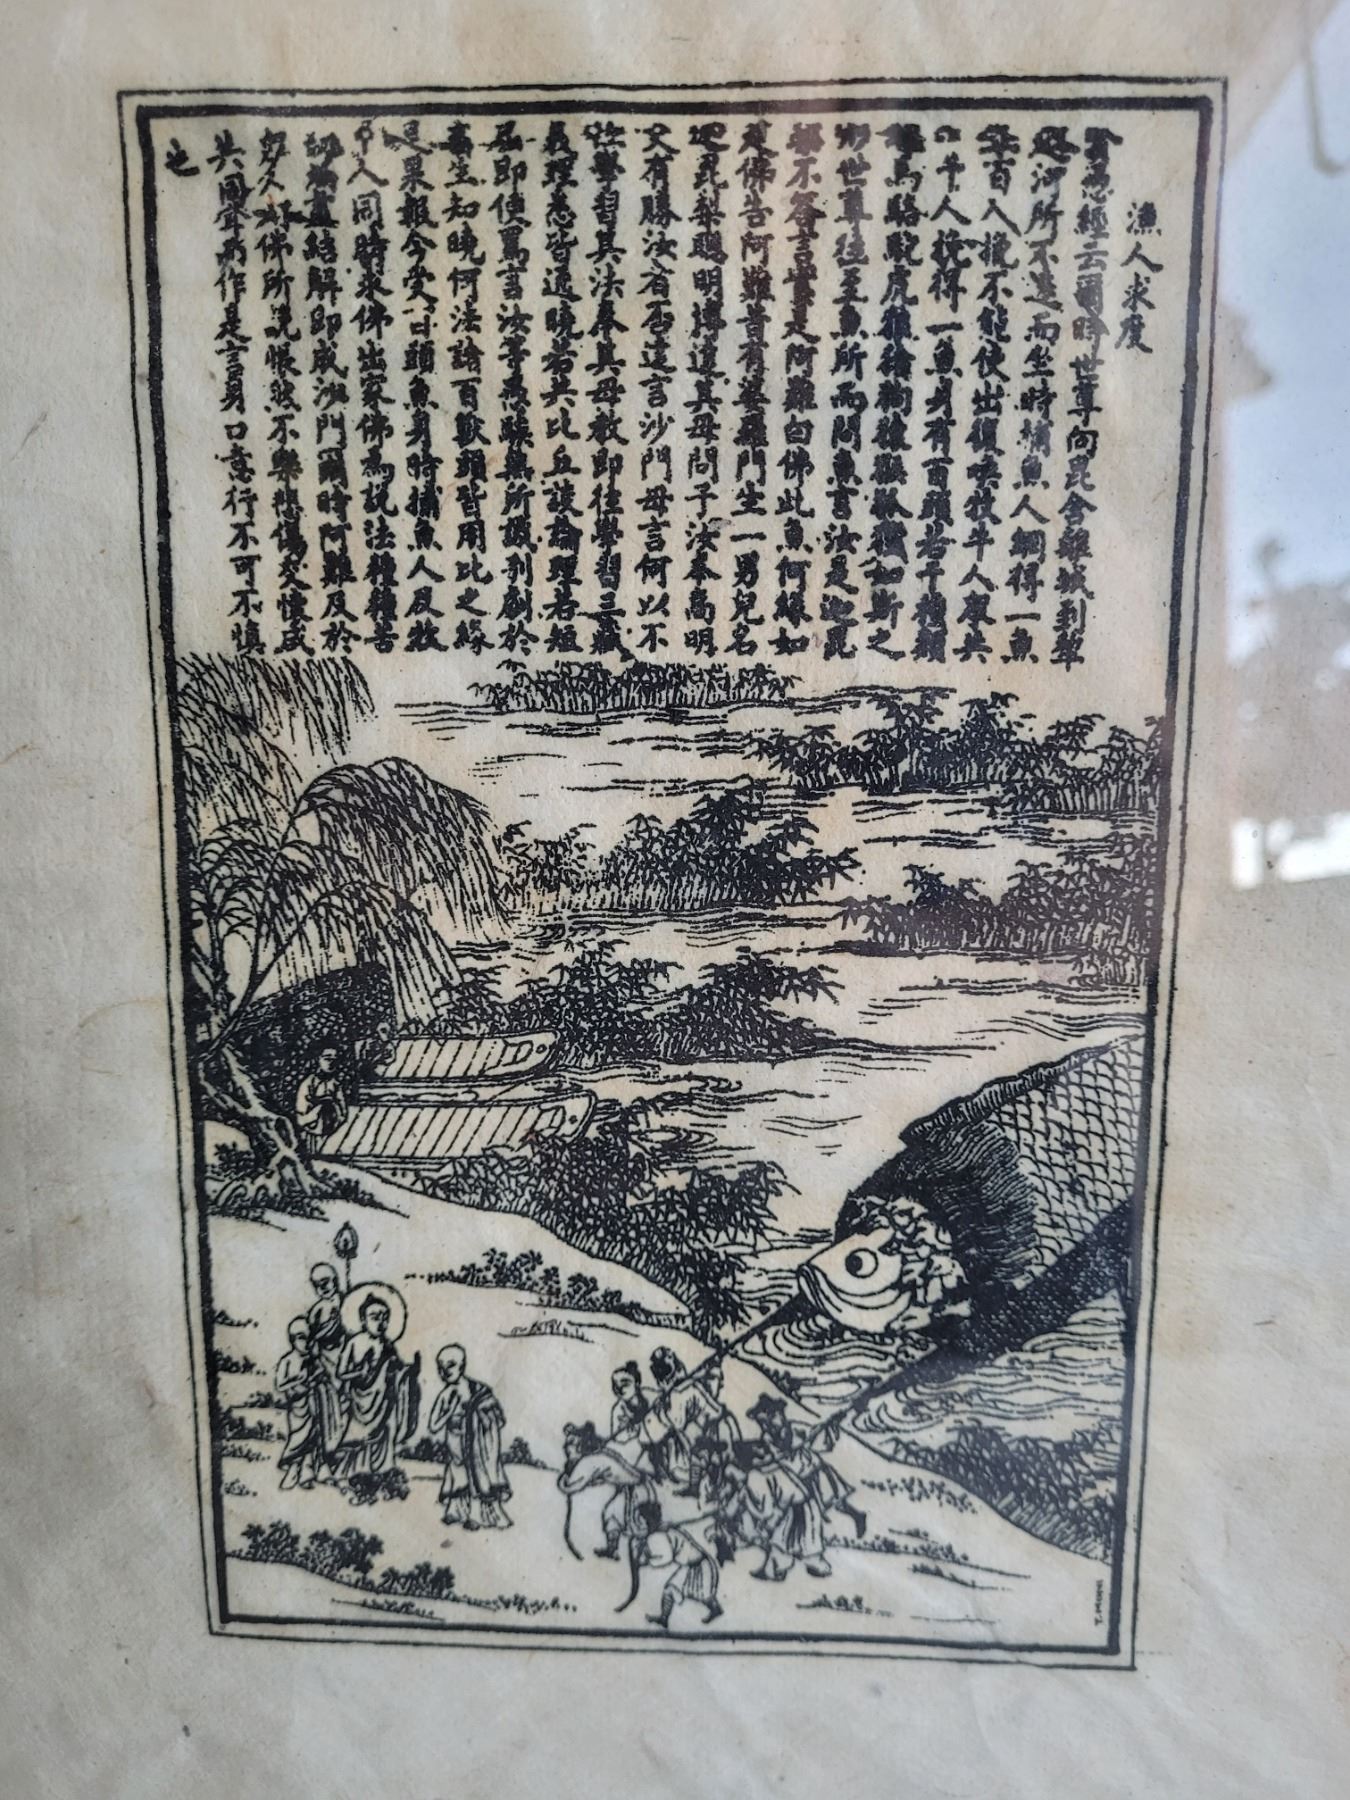 漁人求度
愚經云爾時世尊向毘舍離城到犂
越河所不遠而坐時捕魚人網得一魚
百人挽不能使出復喚牧牛人眾共
千人挽得一魚身有百頭若干種類
驢馬駱駝虎狼猪狗猿猴狐狸如斯之
形世尊往至魚所而問魚言汝是迦毘
梨不答言實是阿難白佛此魚何緣如
是佛告阿難昔有婆羅門生一男兒名
迦毘梨聰明博達其母問子汝本高明
又有勝汝者否還言沙門母言何以不
往學習其法奉其母教即往學習三藏
義理悉皆通曉若共比丘談論理若短
屈即便罵言汝等愚騃無所識別劇於
畜生知曉何法諸百獸頭皆用比之緣
是果報今受百頭魚身時捕魚人及牧
牛人同時求佛出家佛為說法種種苦
漏盡結解即成沙門爾時阿難及於
眾人聞佛所說悵然不樂悲傷交懷咸
共同聲而作是言身口意行不可不慎
之